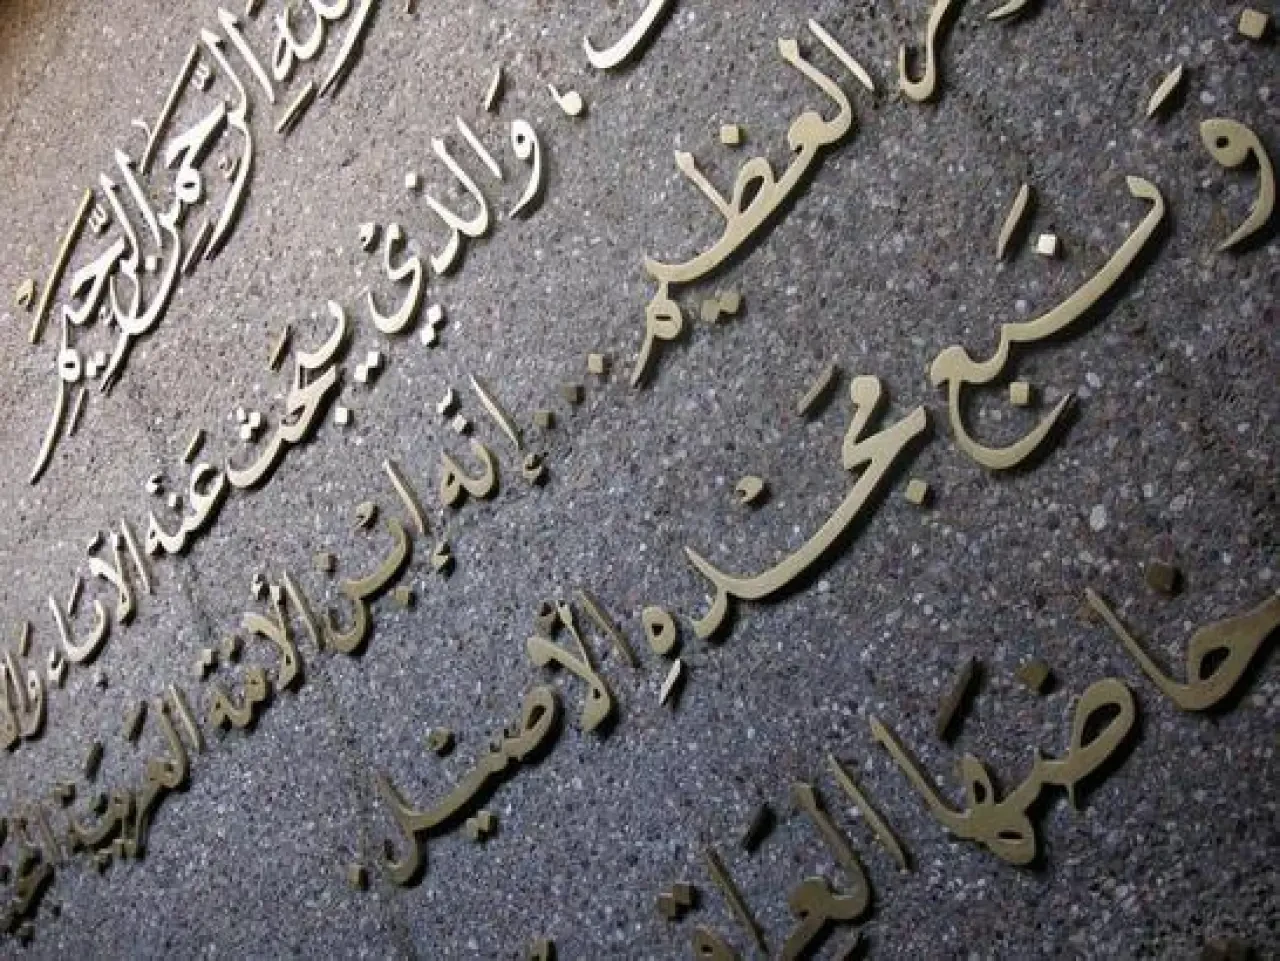 الرّحمن الرّحيم
وَالذي يبحَث عَنه الآباء
العظيم .. إنّه إبن الأمّة العربيّة
وَنبع مَجدهِ الأصيل.
حاضنها